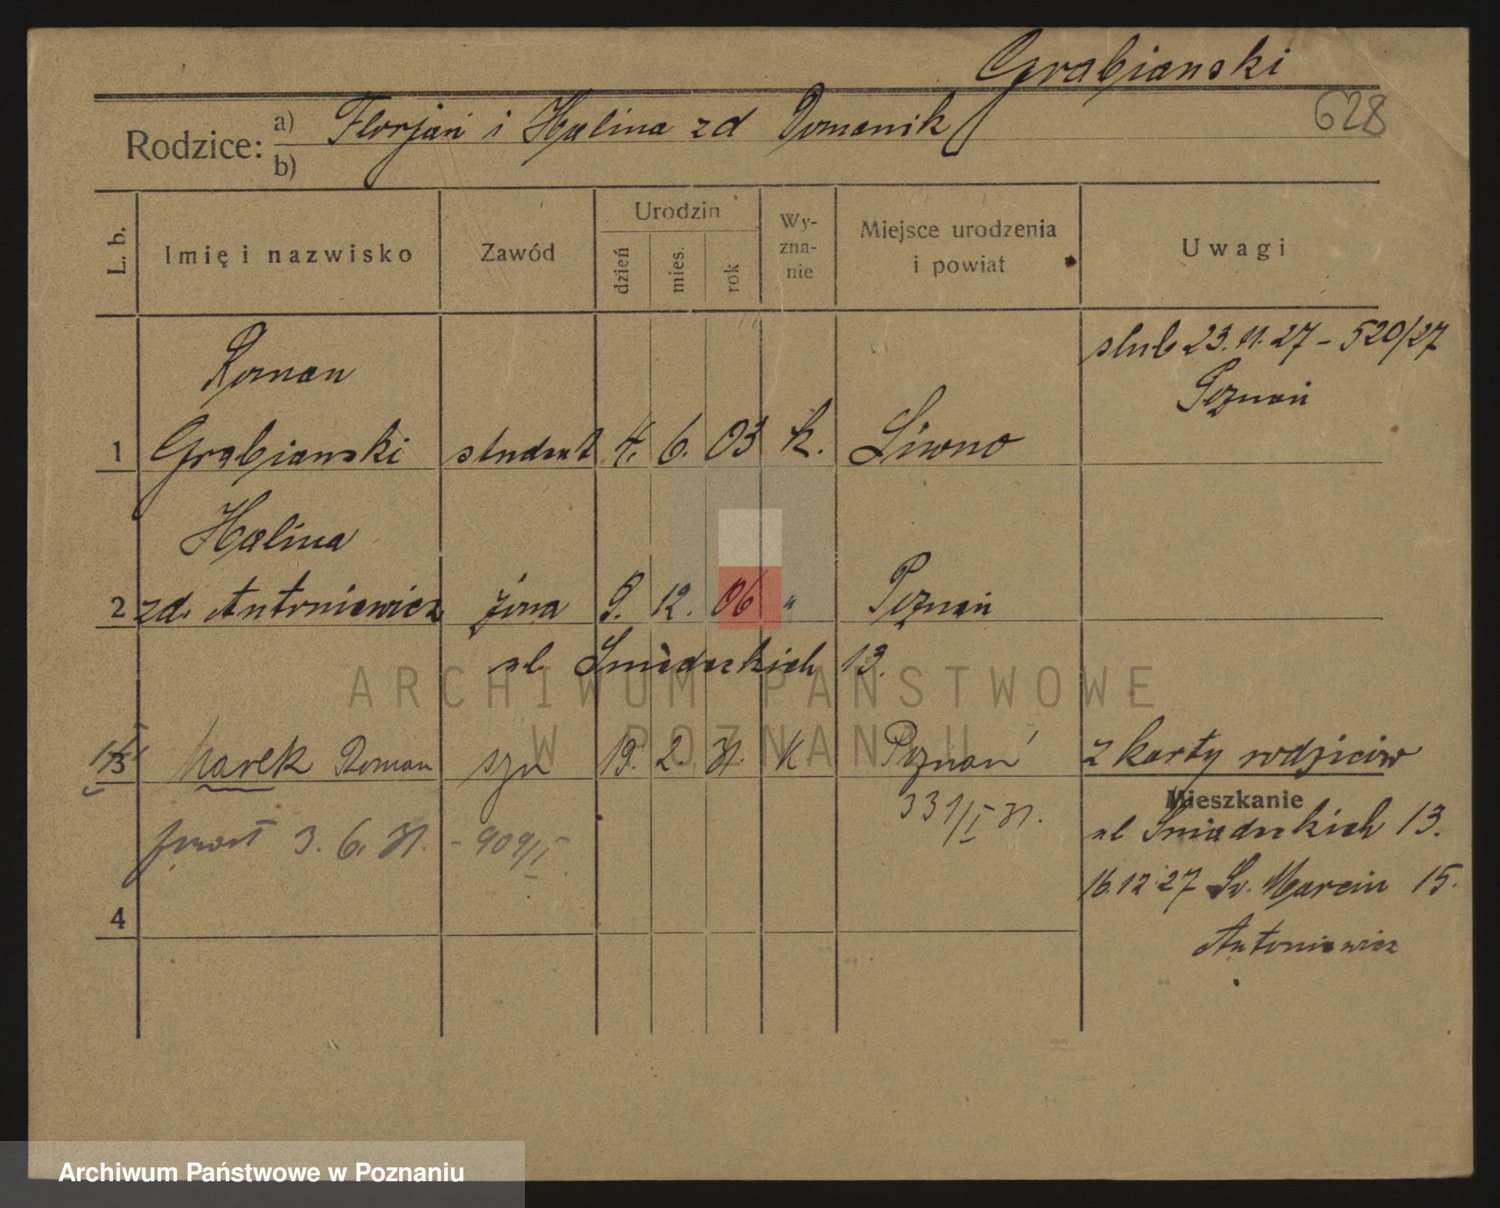 Grabianski
628
Rodzice: a) Florjan i Halina zd Domanik
b)
L. b. Imię i nazwisko Zawód Urodzin dzień mies. rok Wy-zna-nie Miejsce urodzenia i powiat Uwagi
Roman slub 23. 11. 27 - 520/27
Poznań
1 Grabianski student 4. 6. 03 k. Liwno
Halina
2 zd. Antoniewicz żona 9. 12. 06 " Poznań
ul Sniadeckich 13.
3 Marek Roman syn 19. 2. 31. k. Poznań z karty rodziców
331/I 31. Mieszkanie
3. 6. 31. - 909/I ul Sniadeckich 13.
16.12.27 Św. Marcin 15.
4
Antoniewicz
ARCHIWUM PAŃSTWOWE
W POZNANIU
Archiwum Państwowe w Poznaniu